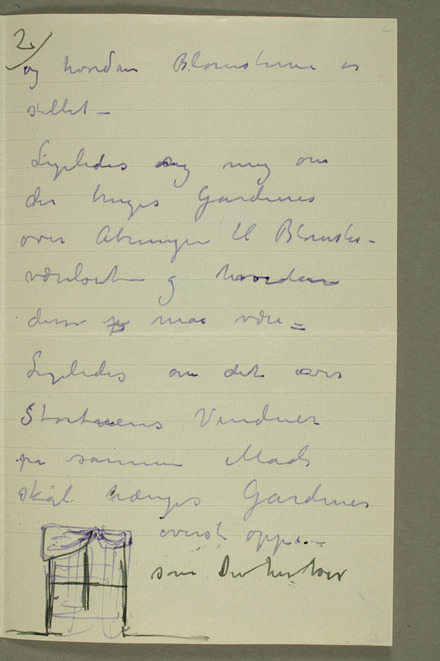 2)
og hvordan Blomsterne er
stillet —
Ligeledes sig mig om
der bruges Gardiner
over Aabningen til Blomster-
værelset og hvordan
disse maa være =
Ligeledes om det er
Storstuens Vinduer
paa samme Maade
skal hænges Gardiner
øverst oppe. —
som